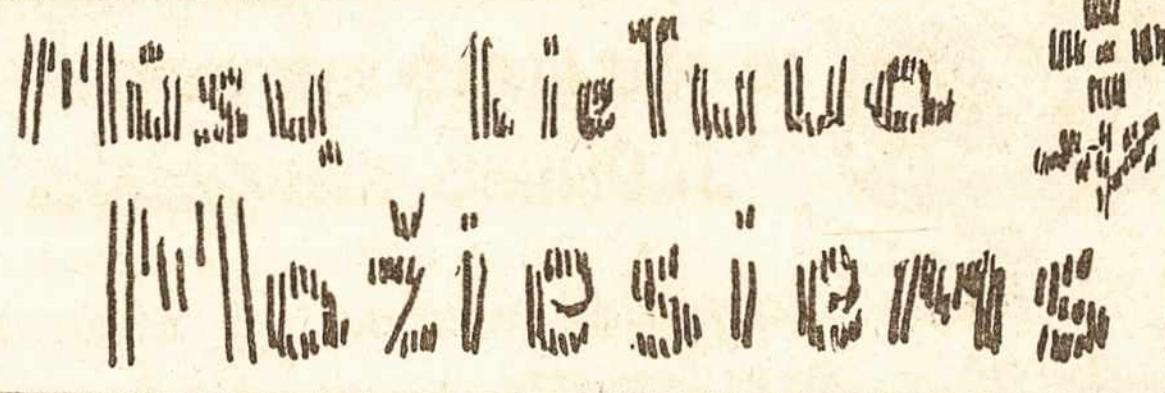 Mūsų Lietuva
Mažiesiems